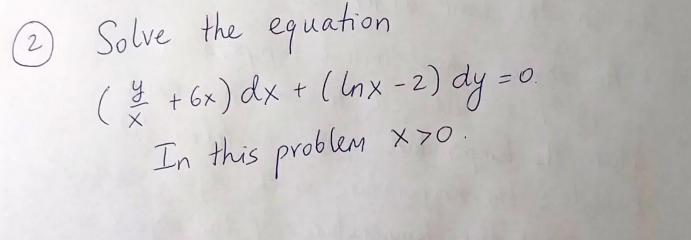 ② Solve the equation
( y/x + 6x) dx + ( lnx - 2) dy = 0.
In this problem x > 0.